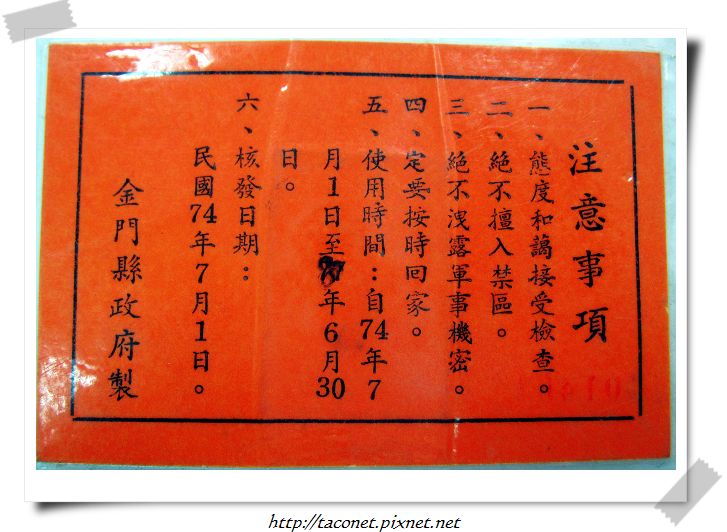 注意事項
一、態度和藹接受檢查。
二、絕不擅入禁區。
三、絕不洩露軍事機密。
四、定要按時回家。
五、使用時間：自74年7
月1日至年6月30
日。
六、核發日期：
民國74年7月1日。
金門縣政府製
http://taconet.pixnet.net